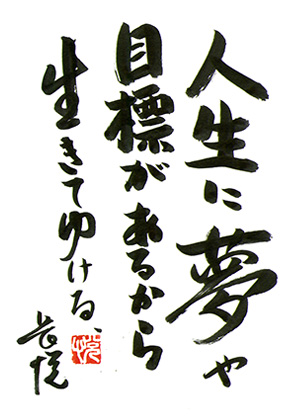 人生に夢や
目標があるから
生きてゆける、